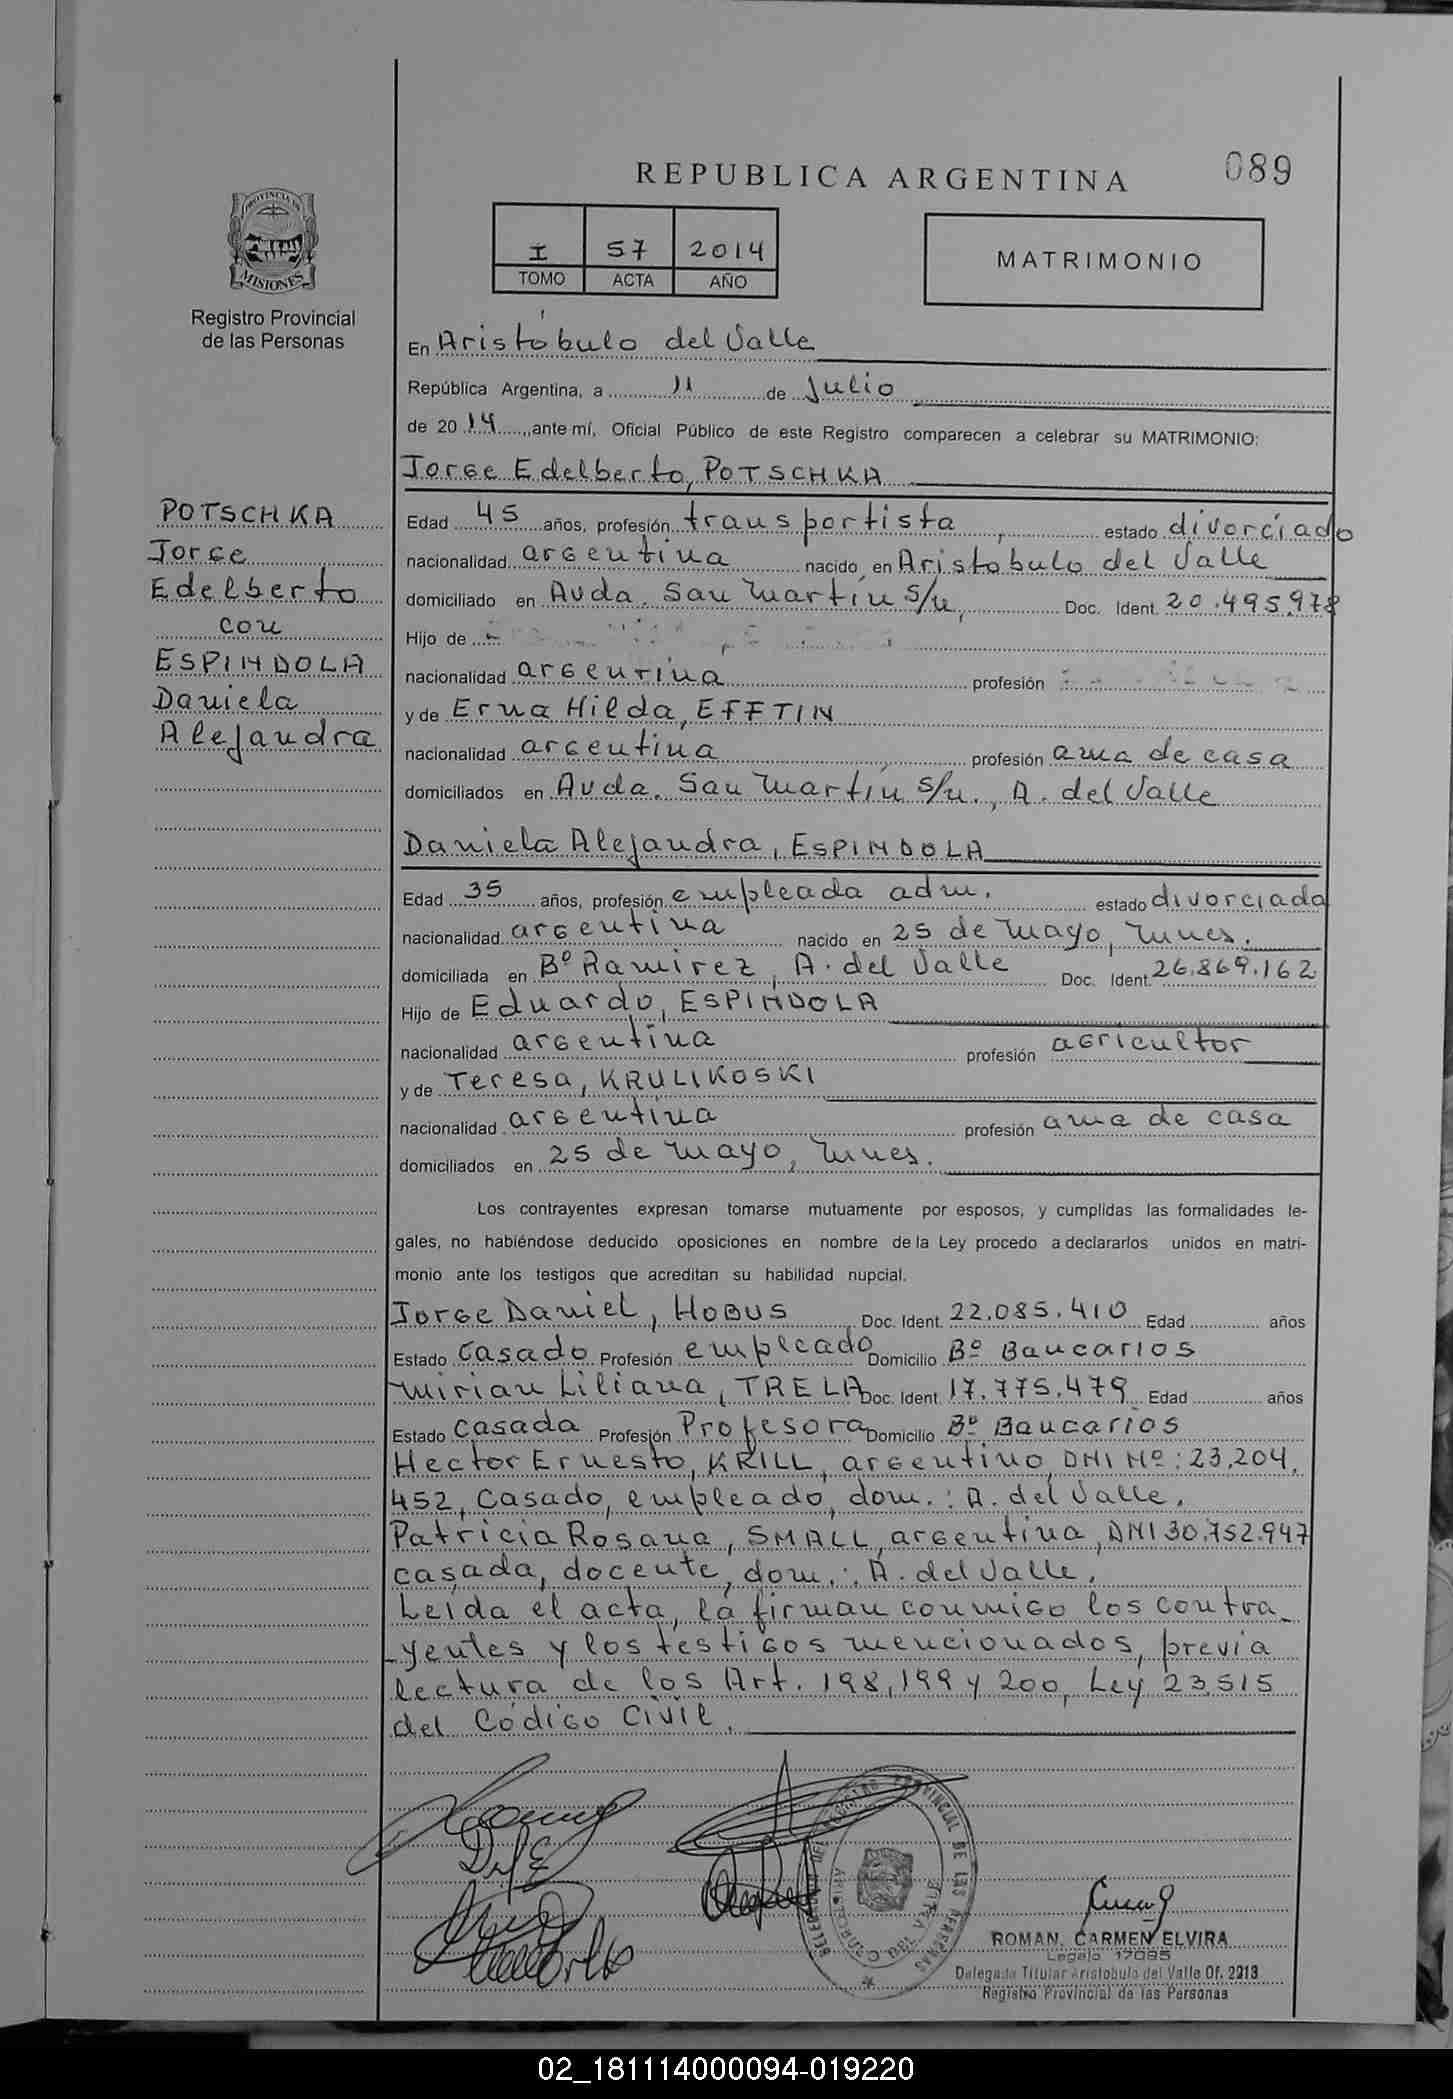 REPUBLICA ARGENTINA
089
PROVINCIA DE
MISIONES
Registro Provincial
de las Personas
I 57 2014
TOMO ACTA AÑO
MATRIMONIO
En Aristóbulo del Valle
República Argentina, a 11 de Julio
de 20 14, ante mí, Oficial Público de este Registro comparecen a celebrar su MATRIMONIO:
Jorge Edelberto, POTSCHKA
POTSCHKA
Jorge
Edelberto
con
ESPINDOLA
Daniela
Alejandra
Edad 45 años, profesión transportista, estado divorciado
nacionalidad argentina nacido en Aristobulo del Valle
domiciliado en Avda. San Martín s/n, Doc. Ident. 20.495.978
Hijo de
nacionalidad argentina profesión
y de Erna Hilda, EFFTIN
nacionalidad argentina, profesión ama de casa
domiciliados en Avda. San Martín s/n., A. del Valle
Daniela Alejandra, ESPINDOLA
Edad 35 años, profesión empleada adm. estado divorciada
nacionalidad argentina nacido en 25 de Mayo, Mnes.
domiciliada en Bº Ramirez, A. del Valle Doc. Ident. 26.869.162
Hijo de Eduardo, ESPINDOLA
nacionalidad argentina profesión agricultor
y de Teresa, KRULIKOSKI
nacionalidad argentina profesión ama de casa
domiciliados en 25 de Mayo, Mnes.
Los contrayentes expresan tomarse mutuamente por esposos, y cumplidas las formalidades le-
gales, no habiéndose deducido oposiciones en nombre de la Ley procedo a declararlos unidos en matri-
monio ante los testigos que acreditan su habilidad nupcial.
Jorge Daniel, HOBUS Doc. Ident. 22.085.410 Edad años
Estado Casado Profesión empleado Domicilio Bº Bancarios
Mirian Liliana, TRELA Doc. Ident. 17.775.479 Edad años
Estado Casada Profesión Profesora Domicilio Bº Bancarios
Hector Ernesto, KRILL, argentino, DNI Nº: 23.204.
452, Casado, empleado, dom.: A. del Valle.
Patricia Rosana, SMALL, argentina, DNI 30.752.947
casada, docente, dom.: A. del Valle.
Leida el acta, la firman conmigo los contra
yentes y los testigos mencionados, previa
lectura de los Art. 198, 199 y 200, Ley 23.515
del Código Civil.
REGISTRO PROVINCIAL DE LAS PERSONAS
DEL VALLE
ROMAN, CARMEN ELVIRA
Legajo 17095
Delegada Titular Aristobulo del Valle Of. 2213
Registro Provincial de las Personas
02_181114000094-019220